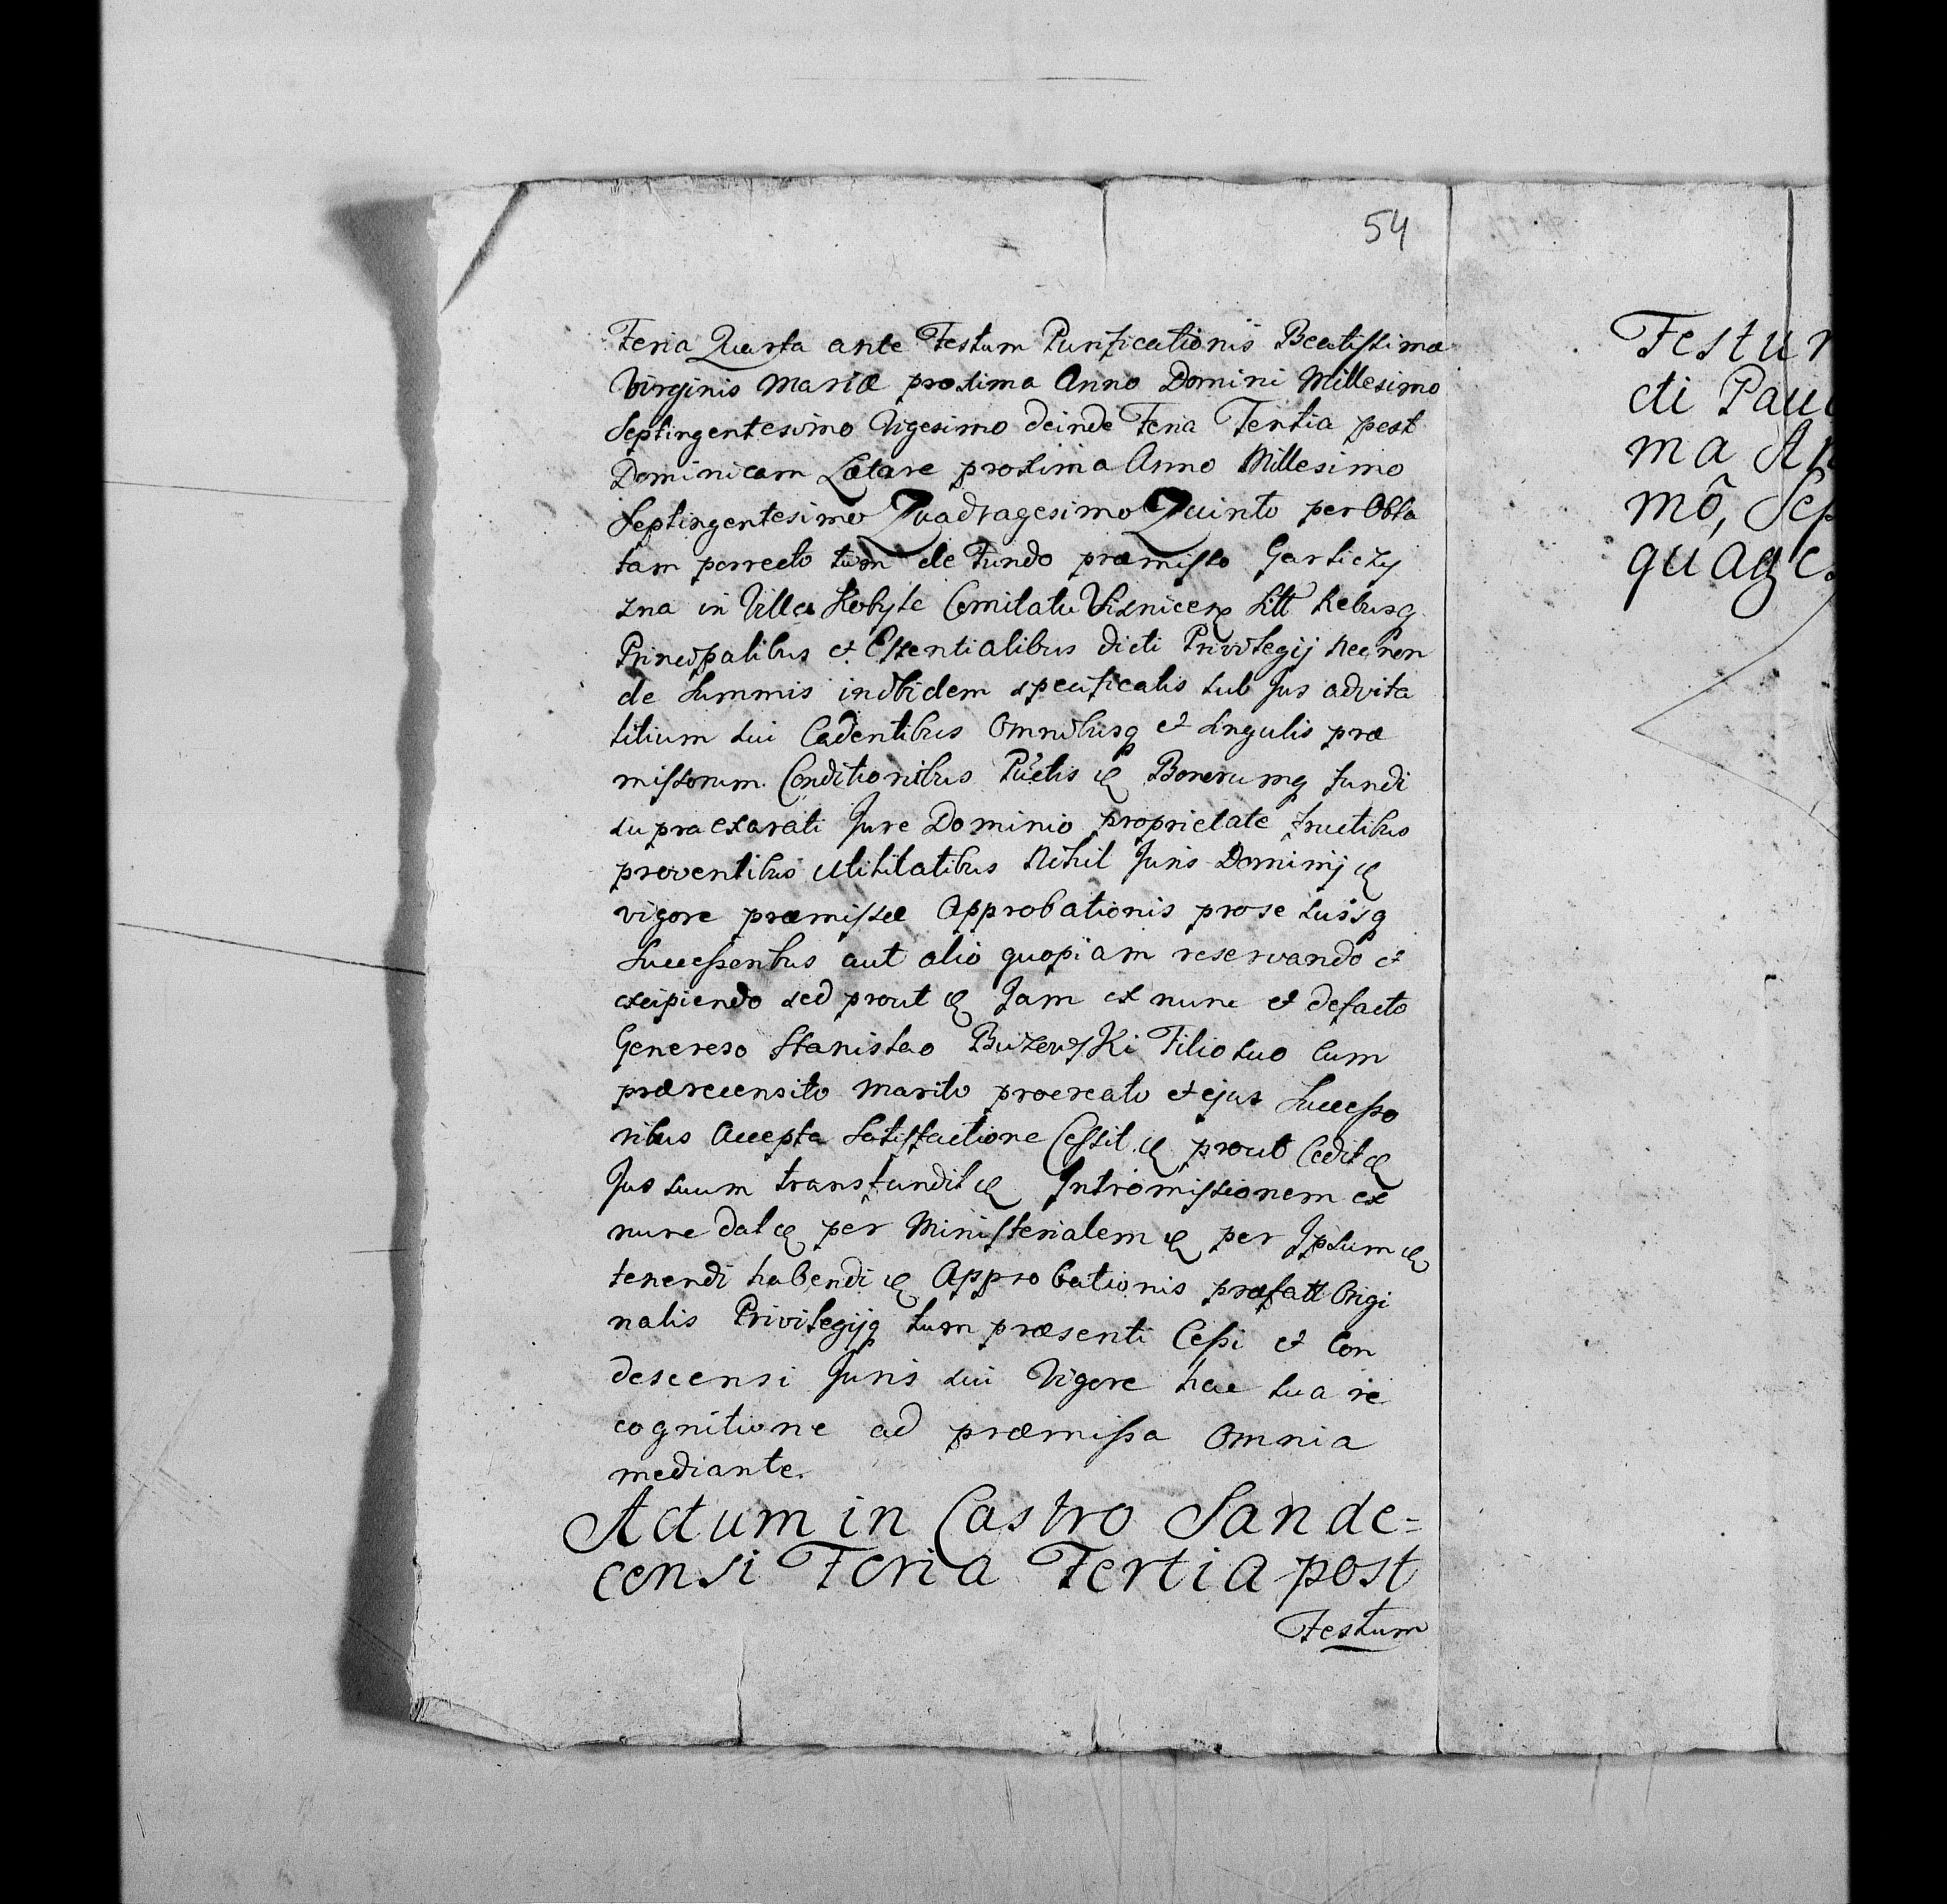 54
Feria Quarta ante Festum Purificationis Beatissimæ
Virginis Mariæ proxima Anno Domini Millesimo
Septingentesimo Vigesimo deinde Feria Tertia post
Dominicam Lætare proxima Anno Millesimo
Septingentesimo Quadragesimo Quinto per Obla
tam porrecto tum de Fundo præmisso Garliczy
zna in Villa Kobyle Comitatu Visnicen Sitt Rebusq
Principalibus et Essentialibus dicti Privilegij nec non
de Summis inibidem specificatis sub Jus advita
litium sui Cadentibus Omnibusq et singulis præ
missorum Conditionibus Puctis &c Bonorumq fundi
supraexarati Jure Dominio proprietate fructibus
proventibus Utilitatibus Nihil Juris Dominij &c
vigore præmissæ Approbationis pro se suisq
Successoribus aut alio quopiam reservando et
excipiendo sed prout &c Jam ex nunc et defacto
Generoso Stanislao Buzewski Filio suo Cum
prærecensito Marito procreato et ejus Successo
ribus Accepta Satisfactione Cessit &c prout Cedit &c
Jus suum transfundit &c Intromissionem ex
nunc dat &c per Ministerialem &c per Ipsum &c
tenendi habendi &c Approbationis præfatt Origi
nalis Privilegijq tum præsenti Cessi et Con
descensi Juris sui Vigore hac sua re
cognitione ad præmissa Omnia
mediante.
Actum in Castro Sande=
censi Feria Tertia post
Festum
Festu
cti Pau
ma A
mô, Sep
quage